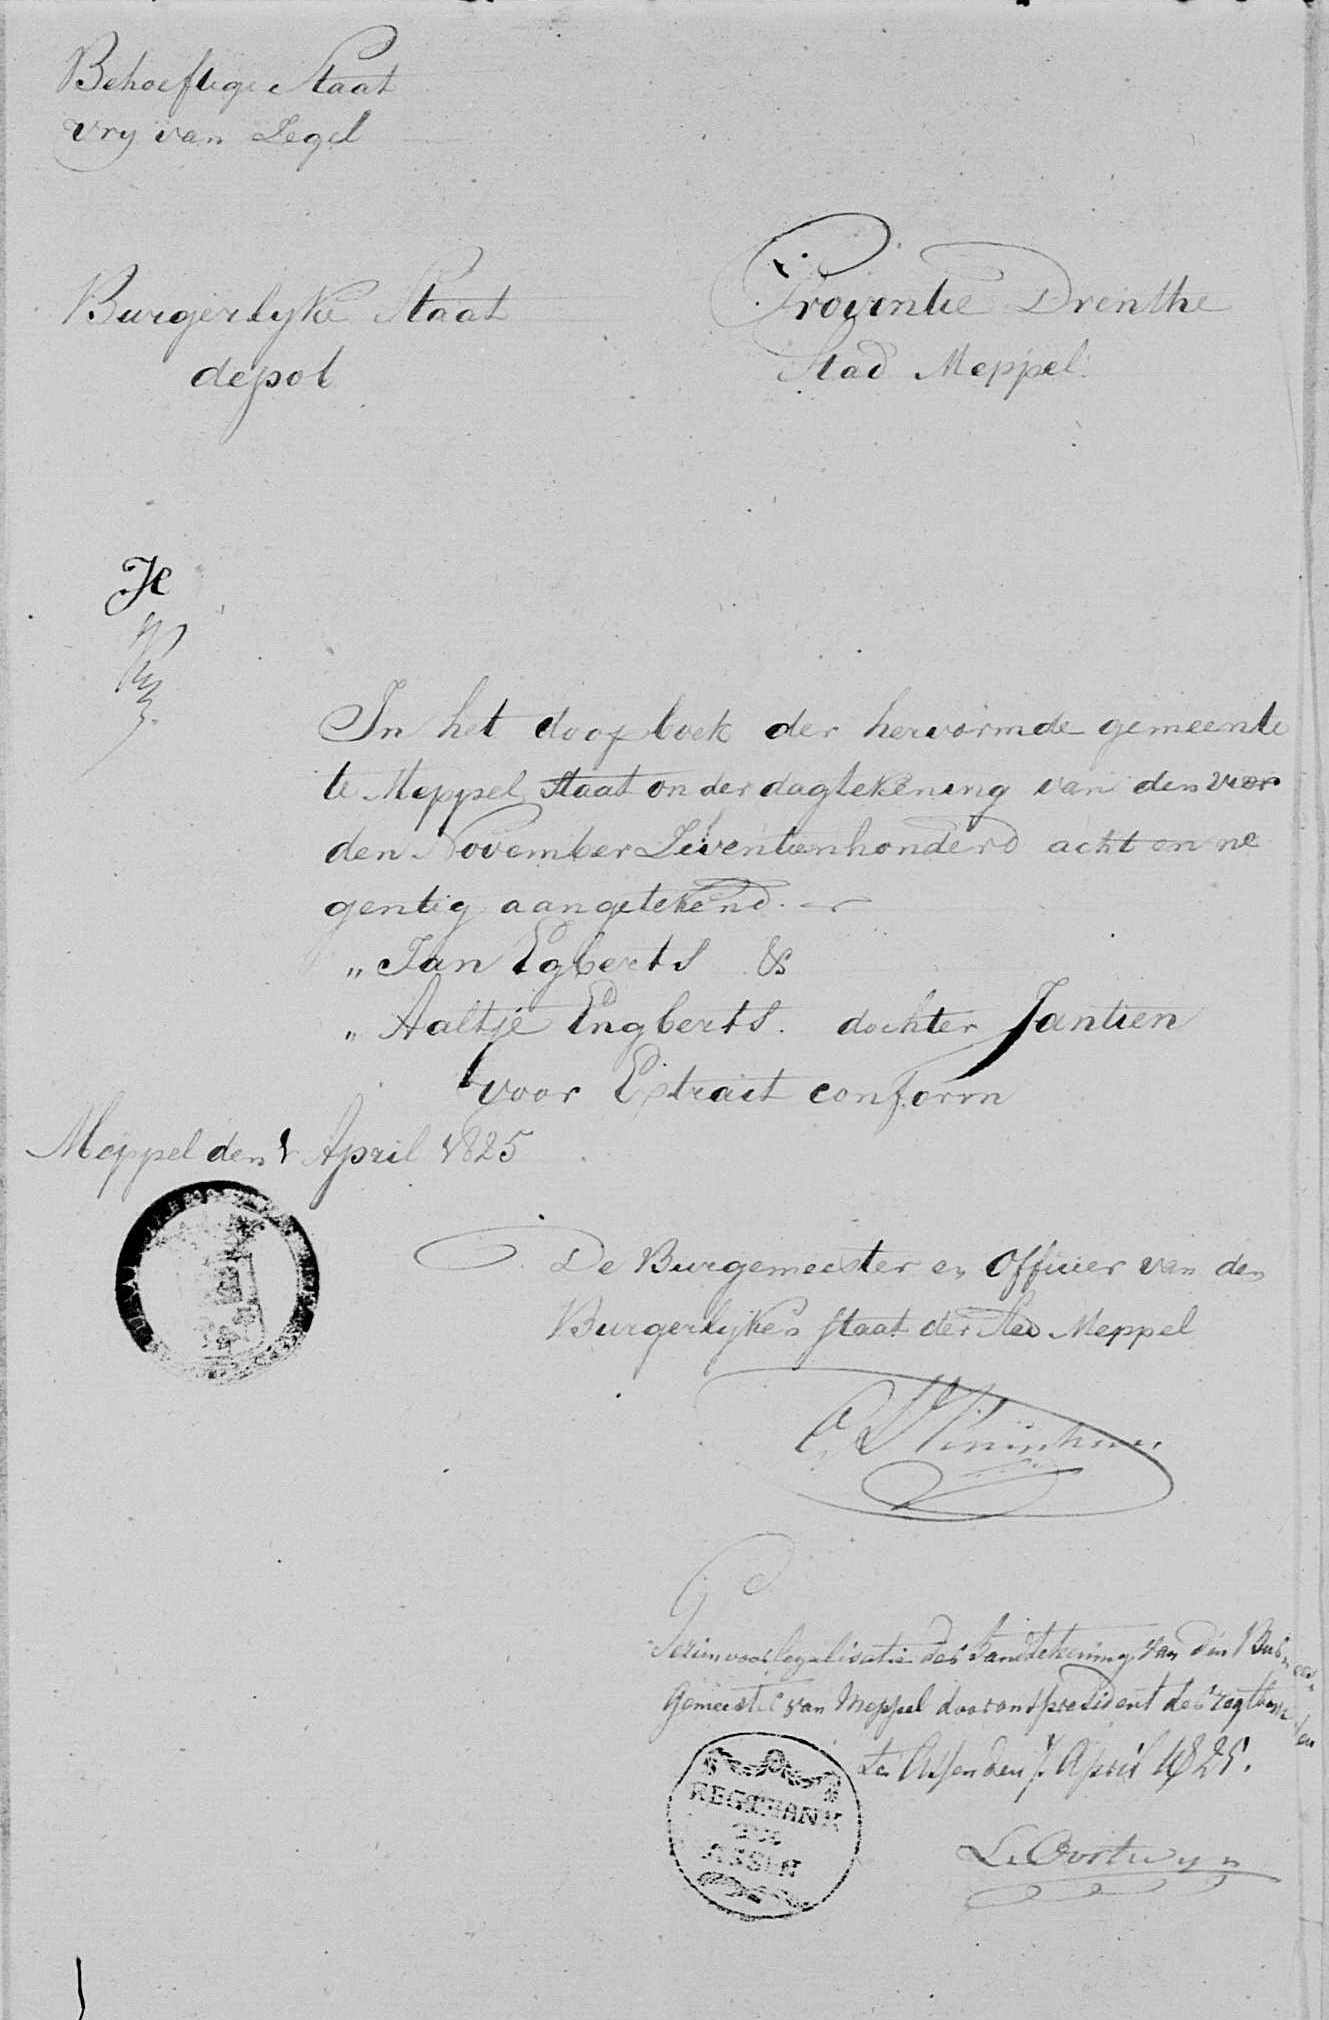 Behoeftige Staat
vry van Zegel
Burgerlyke Staat
depot
Provintie Drenthe
Stad Meppel
In het doopboek der hervormde gemeente
te Meppel staat onder dagtekening van den vier
den November Zeventienhonderd acht en ne
gentig aangetekend.
„ Jan Egberts &
„ Aaltje Engberts. dochter Jantien
voor Extrait conform
Meppel den 1 April 1825
De Burgemeester en Officier van den
Burgerlyken staat der stad Meppel
Gezien voor legalisatie der handtekening van den Bur
gemeester van Meppel door ons president der regtbank
te Assen den 7 April 1825.
REGTBANK
TE
ASSEN
L. Oortwyn